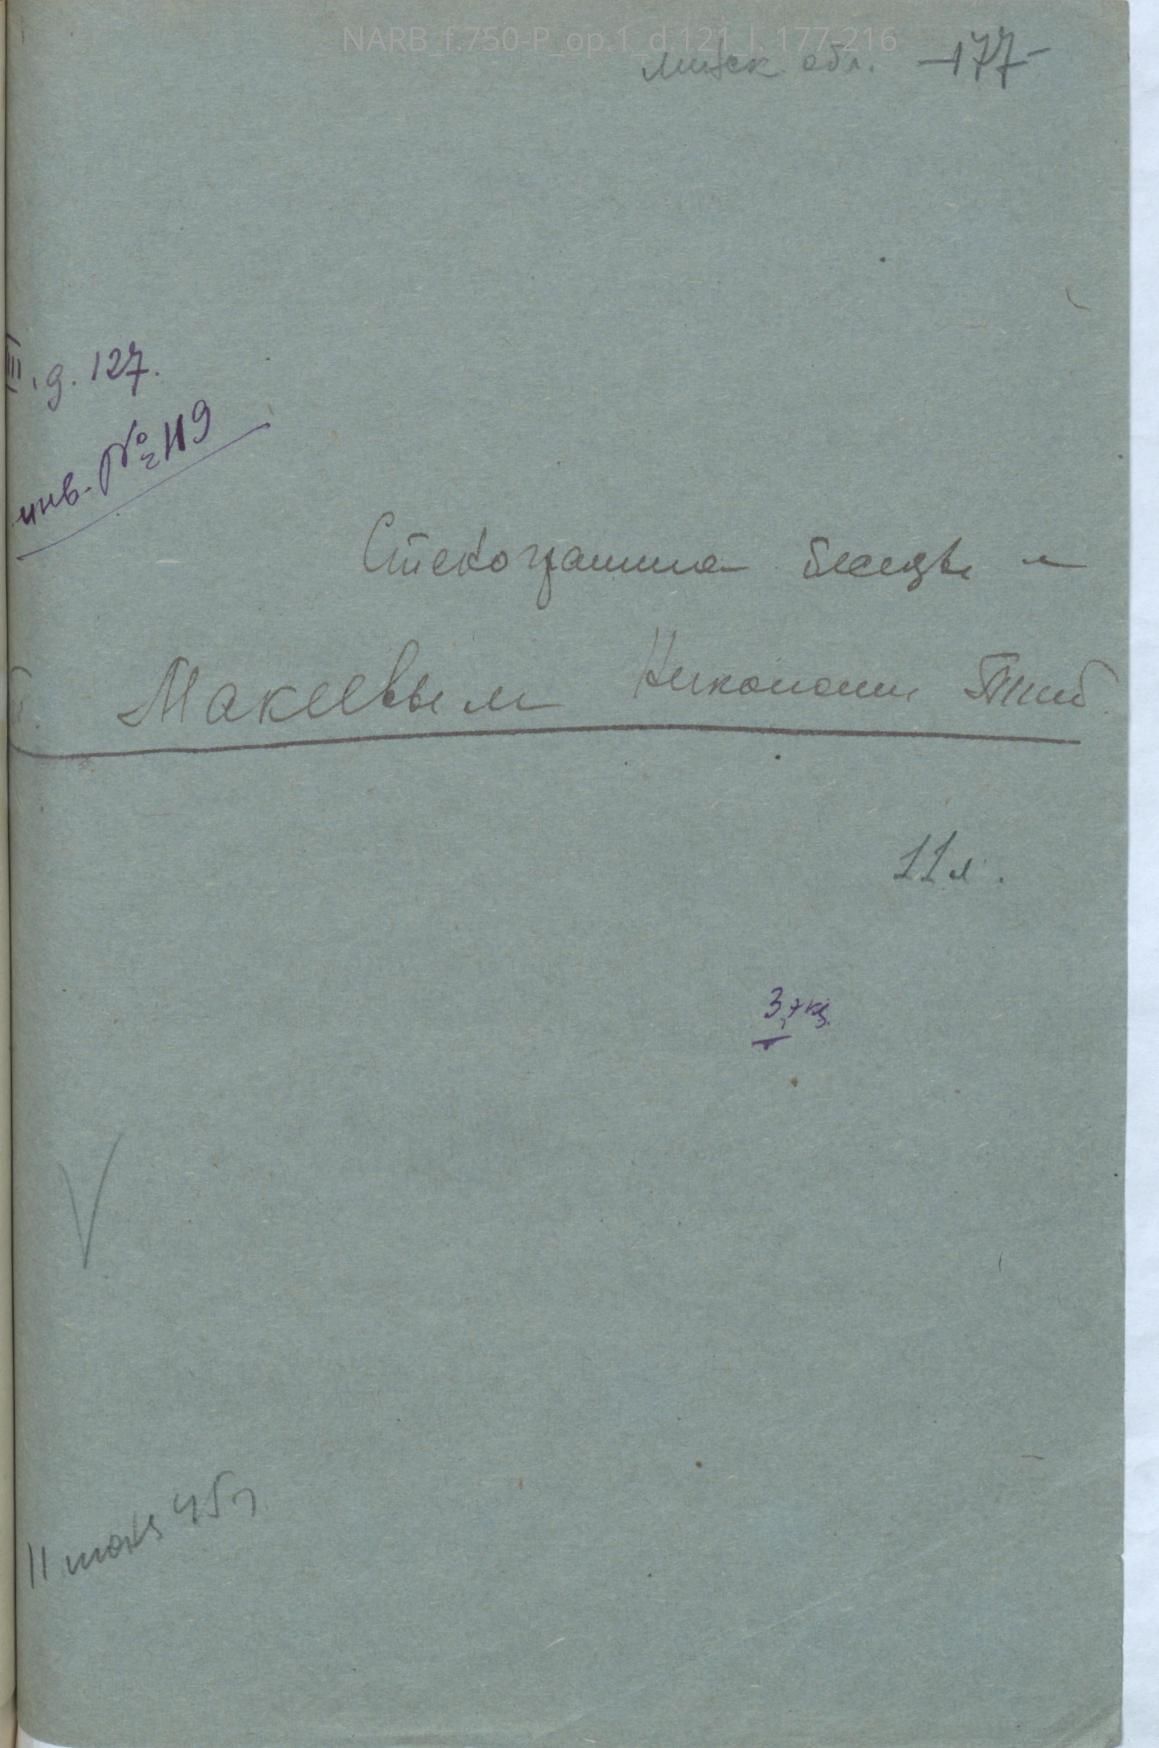 NARB_f.750-P_op.1_d.121_l. 177-216
минск. обл. -177-
III, д. 127.
инв. № 2119
Стенограмма беседы с
т. Макеевым Николаем
11 л.
3 экз.
V
45 г.